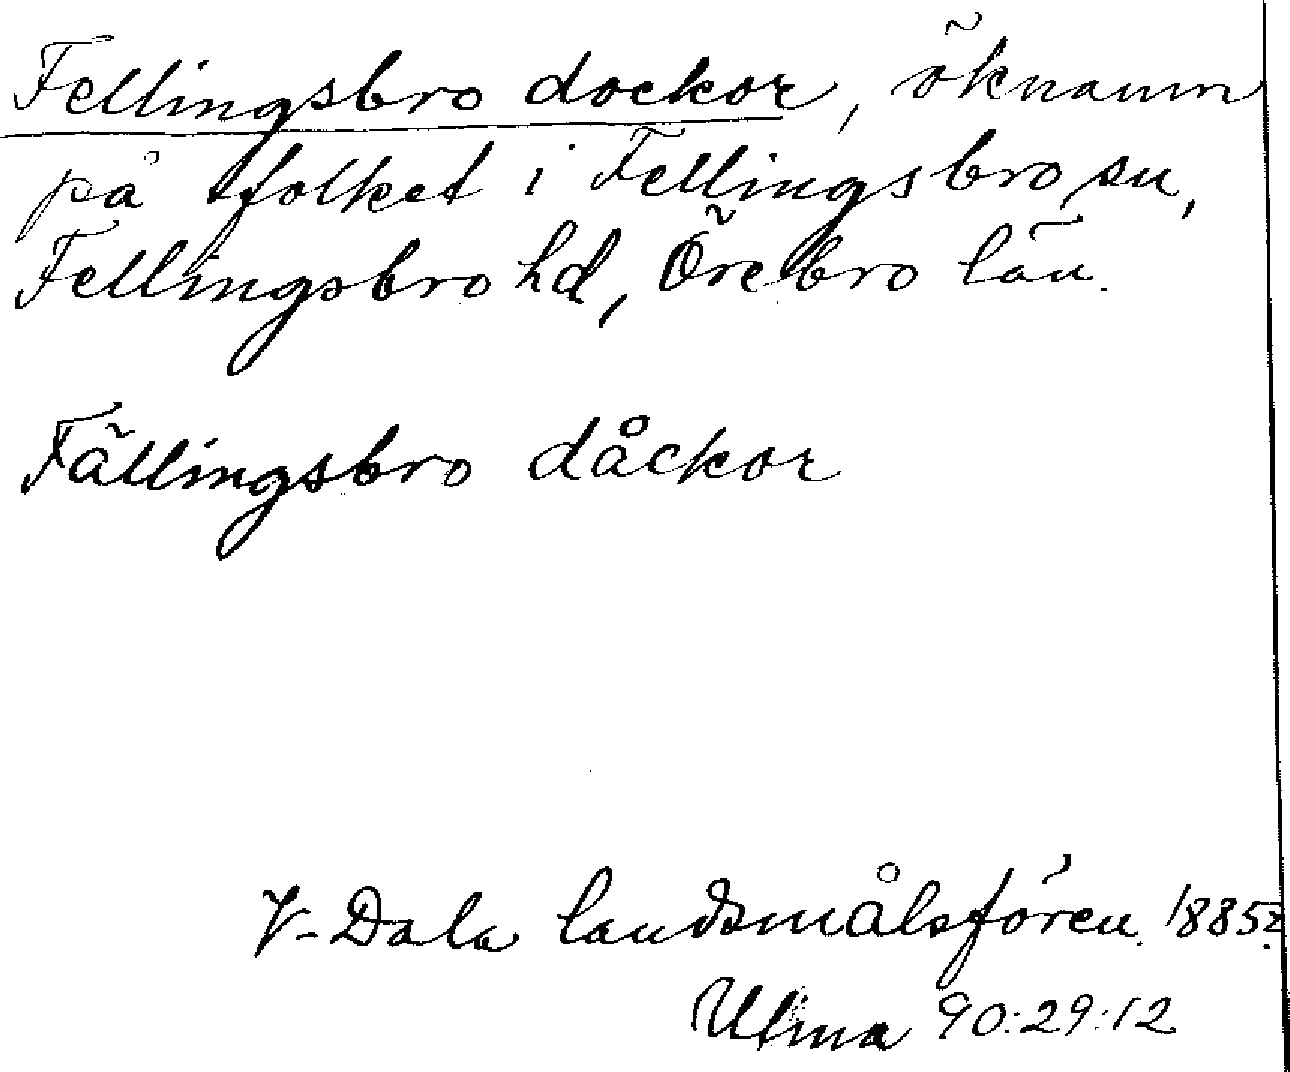 Fellingsbro dockor, öknamn
på folket i Fellingsbro sn,
Fellingsbro hd, Örebro län.
Fällingsbro dåckor
V-Dala landsmålsfören. 1885
Ulma 90:29:12